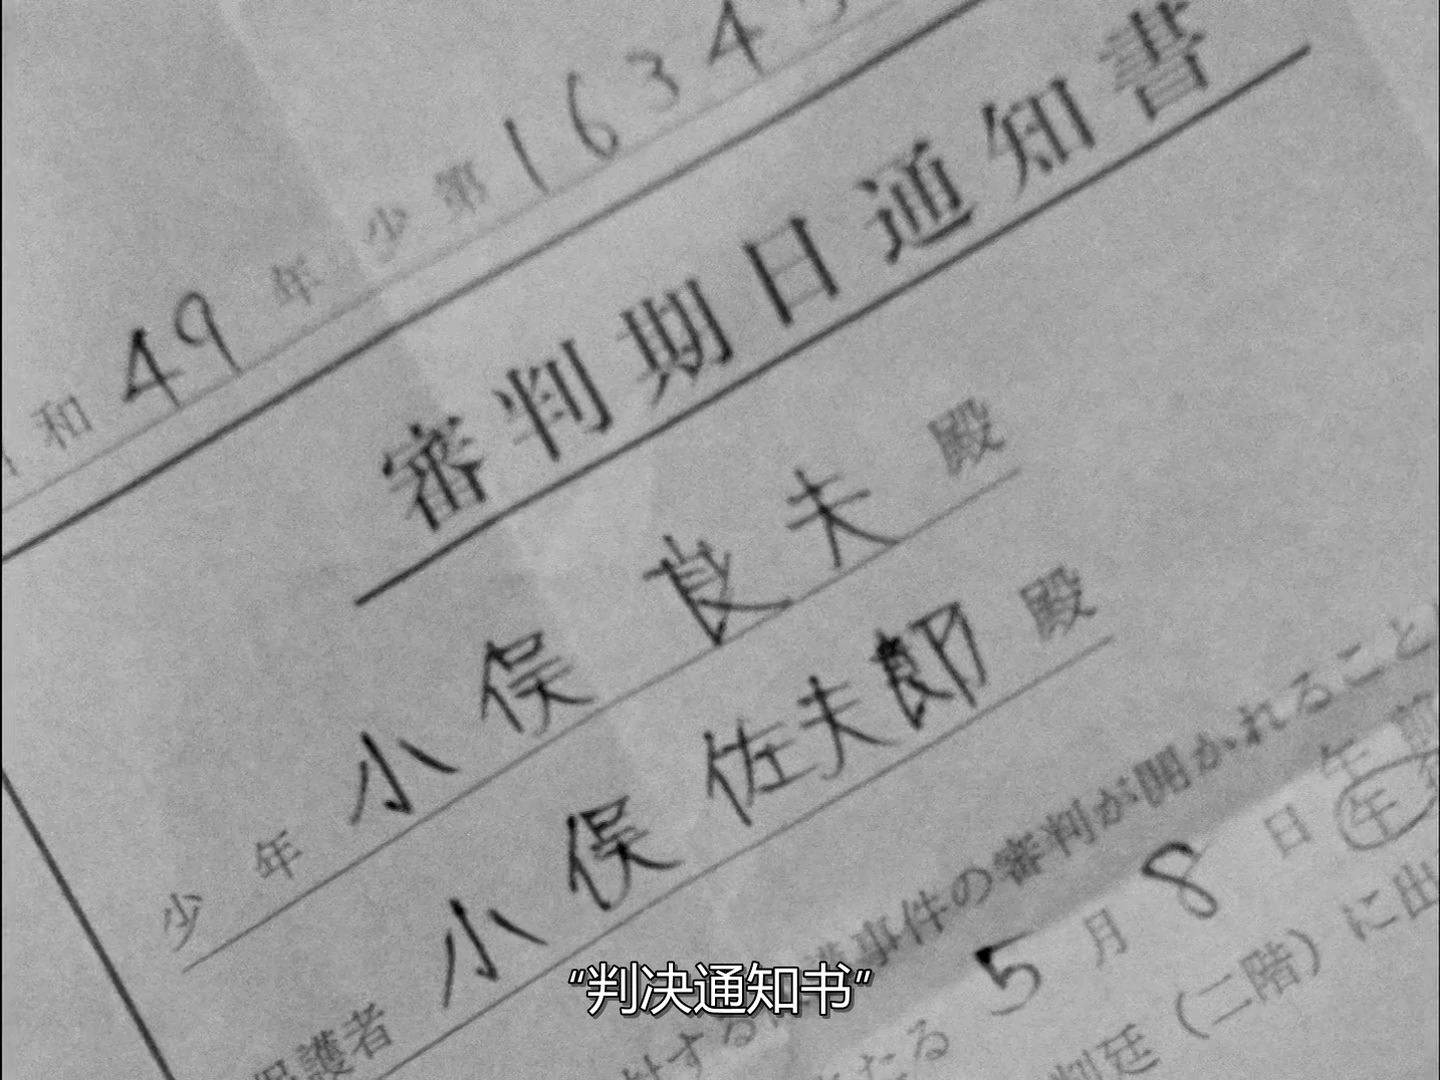 和49年少第1634
審判期日通知書
少年 小俣良夫殿
保護者 小俣佐夫郎殿
する 事件の審判が開かれること
たる5月8日午前
判廷（二階）に出
“判决通知书”